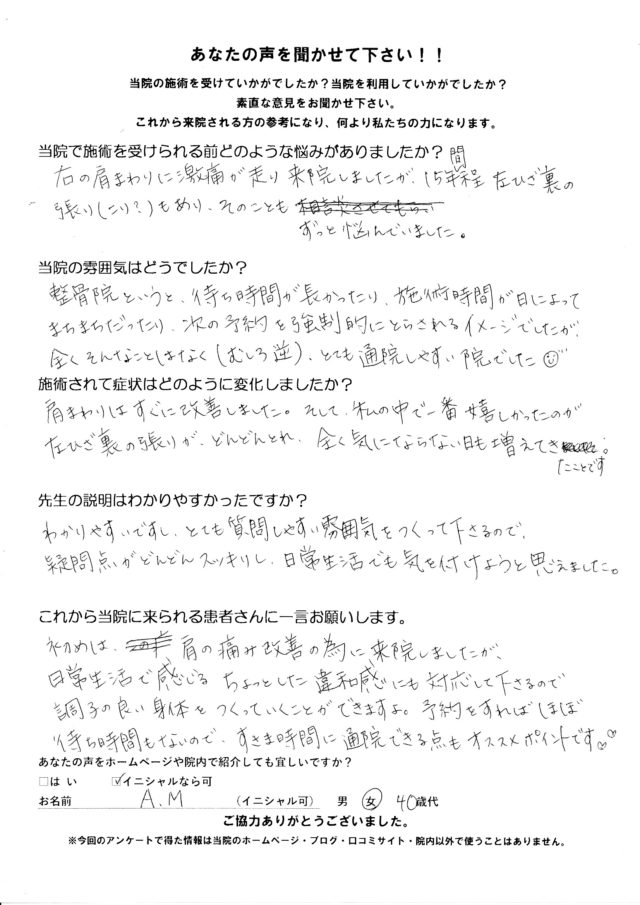 あなたの声を聞かせて下さい！！
当院の施術を受けていかがでしたか？当院を利用していかがでしたか？
素直な意見をお聞かせ下さい。
これから来院される方の参考になり、何より私たちの力になります。
当院で施術を受けられる前どのような悩みがありましたか？
右の肩まわりに激痛が走り来院しましたが、15年間程左ひざ裏の
張り(こり？)もあり、そのことも相談させてもらい
ずっと悩んでいました。
当院の雰囲気はどうでしたか？
整骨院というと、待ち時間が長かったり、施術時間が日によって
まちまちだったり、次の予約を強制的にとらされるイメージでしたが、
全くそんなことはなく(むしろ逆)、とても通院しやすい院でした☺
施術されて症状はどのように変化しましたか？
肩まわりはすぐに改善しました。そして、私の中で一番嬉しかったのが
左ひざ裏の張りが、どんどんとれ、全く気にならない日も増えてき
たことです。
先生の説明はわかりやすかったですか？
わかりやすいですし、とても質問しやすい雰囲気をつくって下さるので、
疑問点がどんどんスッキリし、日常生活でも気を付けようと思えました。
これから当院に来られる患者さんに一言お願いします。
初めは、肩の痛み改善の為に来院しましたが、
日常生活で感じるちょっとした違和感にも対応して下さるので
調子の良い身体をつくっていくことができますよ。予約をすればほぼ
待ち時間もないので、すきま時間に通院できる点もオススメポイントです♡♡
あなたの声をホームページや院内で紹介しても宜しいですか？
□はい ☑イニシャルなら可
お名前 A.M （イニシャル可） 男 女 40歳代
ご協力ありがとうございました。
※今回のアンケートで得た情報は当院のホームページ・ブログ・口コミサイト・院内以外で使うことはありません。